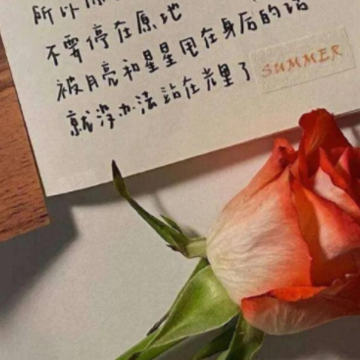 所以
不要停在原地
被月亮和星星甩在身后的话
就没办法站在光里了
SUMMER